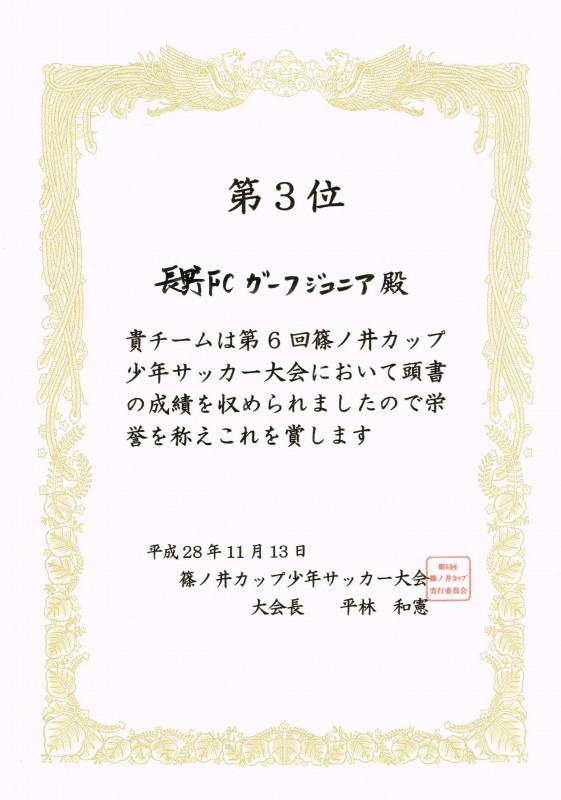 第3位
長野FC ガーフジュニア殿
貴チームは第6回篠ノ井カップ
少年サッカー大会において頭書
の成績を収められましたので栄
誉を称えこれを賞します
平成28年11月13日
篠ノ井カップ少年サッカー大会
大会長 平林 和憲
第6回
篠ノ井カップ
実行委員会